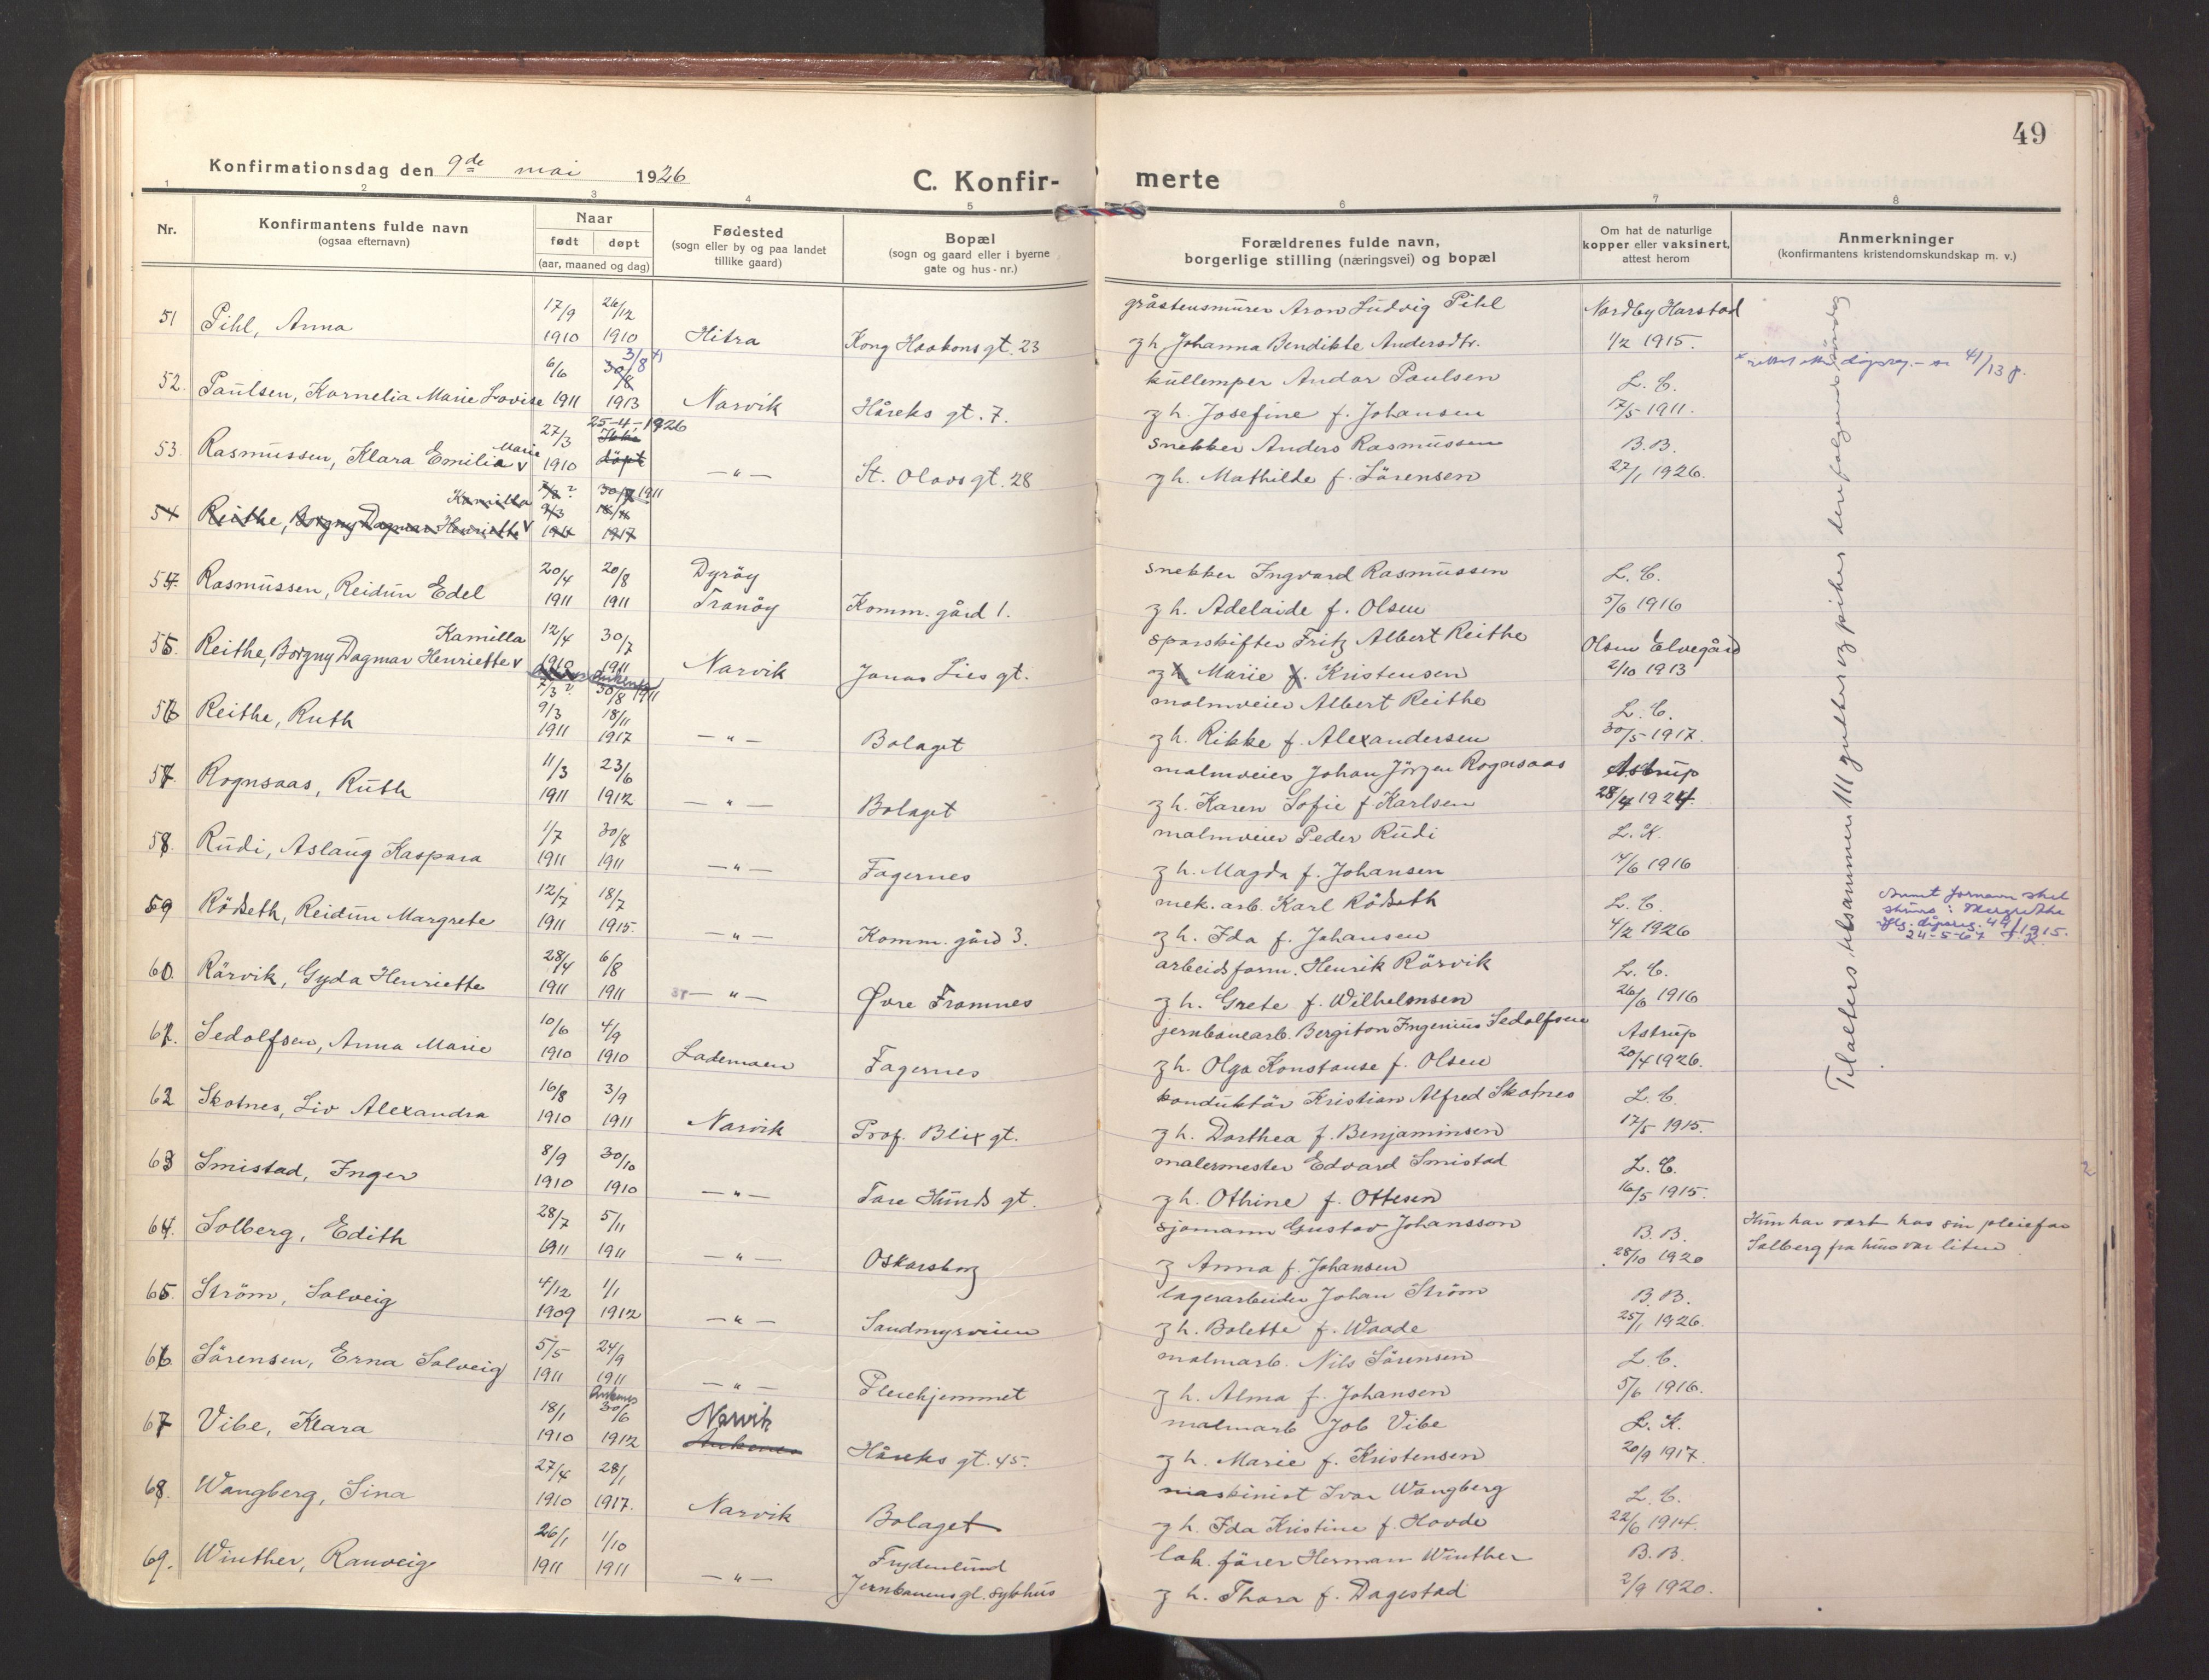 49
Konfirmationsdag den 9de mai 1926
C. Konfir- merte
1 2 3 4 5 6 7 8
Nr.
Konfirmantens fulde navn
(ogsaa efternavn)
Naar
født døpt
(aar, maaned og dag)
Fødested
(sogn eller by og paa landet
tillike gaard)
Bopæl
(sogn og gaard eller i byerne
gate og hus-nr.)
Forældrenes fulde navn,
borgerlige stilling (næringsvei) og bopæl
Om hat de naturlige
kopper eller vaksinert,
attest herom
Anmerkninger
(konfirmantens kristendomskundskap m. v.)
17/9 26/12 gråstensmurer Aron Ludvig Pihl Nordby Harstad
51 Pihl, Anna 1910 1910 Hitra Kong Haakons gt. 23 g h. Johanna Bendikte Andersdtr. 1/2 1915.
6/6 30/8 3/8 x) kullemper Andor Paulsen L. C.
52. Paulsen, Kornelia Marie Lovise 1911 1913 Narvik Håreks gt. 7. g h. Josefine f. Johansen 17/5 1911.
x rettet efter døpsreg. - nr 41/13 J.
27/3 25-4-1926 Ikke snekker Anders Rasmussen B.B.
53. Rasmussen, Klara Emilie v Marie 1910 døpt — " — St. Olavs gt. 28 g h. Mathilde f. Sörensen 27/1 1926.
Kamilla 7/3 ? 30/8 1911
54 Reithe, Borgny Dagmar Henriette v 9/3 1911 18/11 1917
20/4 20/8 Dyröy snekker Ingvard Rasmussen L. C.
54. Rasmussen, Reidun Edel 1911 1911 Tranöy Komm. gård 1. g h. Adelaide f. Olsen 5/6 1916
Kamilla 12/4 30/7 sporskifter Fritz Albert Reithe Olsen Elvegård
55. Reithe, Borgny Dagmar Henriette v 1910 1911 Narvik Jonas Lies gt. g h Marie f. Kristensen 2/10 1913
Ankenes 7/3 ? 30/8 1911
9/3 18/11 malmveier Albert Reithe L. C.
56 Reithe, Ruth 1911 1917 — " — Bolaget g h. Rikke f. Alexandersen 30/5 1917.
11/3 23/6 malmveier Johan Jörgen Rognsaas Astrup
57. Rognsaas, Ruth 1911 1912 — " — Bolaget g h. Karen Sofie f Karlsen 28/4 1924.
1/7 30/8 malmveier Peder Rudi L. K.
58. Rudi, Aslaug Kaspara 1911 1911 — " — Fagernes g h. Magda f. Johansen 14/6 1916
12/7 18/7 mek. arb. Karl Rödseth L. C.
59 Rödseth, Reidun Margrete 1911 1915. — " — Komm. gård 3. g h. Ida f. Johansen 4/2 1926
Annet fornavn skal
skrives: Margrethe
jfr. dåpsreg. 44/1915.
24-5-67
28/4 6/8 arbeidsform. Henrik Rörvik L. C.
60. Rörvik, Gyda Henriette 1911 1911 — " — Øvre Framnes g h. Grete f. Wilhelmsen 26/6 1916
10/6 4/9 jernbanearb. Bergiton Ingenius Sedolfsen Astrup
61. Sedolfsen, Anna Marie 1910 1910 Lademoen Fagernes g h. Olga Konstanse f. Olsen 20/4 1926.
16/8 3/9 konduktör Kristian Alfred Skotnes L. C.
62 Skotnes, Liv Alexandra 1910 1911 Narvik Prof. Blix gt. g h. Dorthea f. Benjaminsen 17/5 1915.
8/9 30/10 malermester Edvard Smistad L. C.
63 Smistad, Inger 1910 1910 — " — Tore Hunds gt. g h. Othine f. Ottesen 16/5 1915.
28/7 5/11 sjömann Gustav Johansson B. B.
64. Solberg, Edith 1911 1911 — " — Oskarsborg g Anna f. Johansen 28/10 1920
Hun har vært hos sin pleiefar
Solberg fra hun var liten
4/12 1/1 lagerarbeider Johan Ström B. B.
65. Ström, Solveig 1909 1912 — " — Sandmyrveien g h. Bolette f. Waade 25/1 1926.
5/5 24/9 malmarb. Nils Sörensen L. C.
66. Sörensen, Erna Solveig 1911 1911 — " — Pleiehjemmet g h. Alma f. Johansen 5/6 1916.
Ankenes
18/1 30/6 Narvik malmarb Job Vibe L. K.
67 Vibe, Klara 1910 1912 Ankenes Håreks gt. 45. g h. Marie f. Kristensen 20/9 1917.
27/4 28/1 maskinist Ivar Wangberg L. C.
68. Wangberg, Sina 1910 1917. Narvik Bolaget g h. Ida Kristine f. Hovde 22/6 1914.
26/1 1/10 Frydenlund lok. förer Herman Winther B. B.
69. Winther, Ranveig 1911 1911 — " — Jernbanens gl. sykhus g h. Thora f. Dagestad 2/9 1920.
Til alters tilsammen 111 gutter og piker den følgende söndag